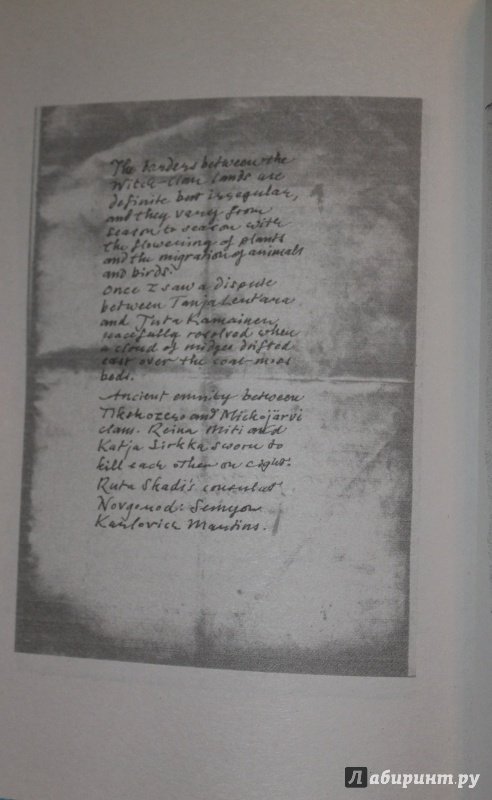 The borders between the
Witch-clan lands are
definite but irregular,
and they vary from
season to season with
the flowering of plants
and the migration of animals
and birds.
Once I saw a dispute
between Tanja Lentara
and Juta Kamainen
peacefully resolved when
a cloud of midges drifted
east over the coal-moss
beds.
Ancient enmity between
Tikhozero and Miekojärvi
clans. Reina Miti and
Katja Sirkka sworn to
kill each other on sight.
Ruta Skadi's consul at
Novgorod: Semyon
Karlovich Martins.
Лабиринт.ру